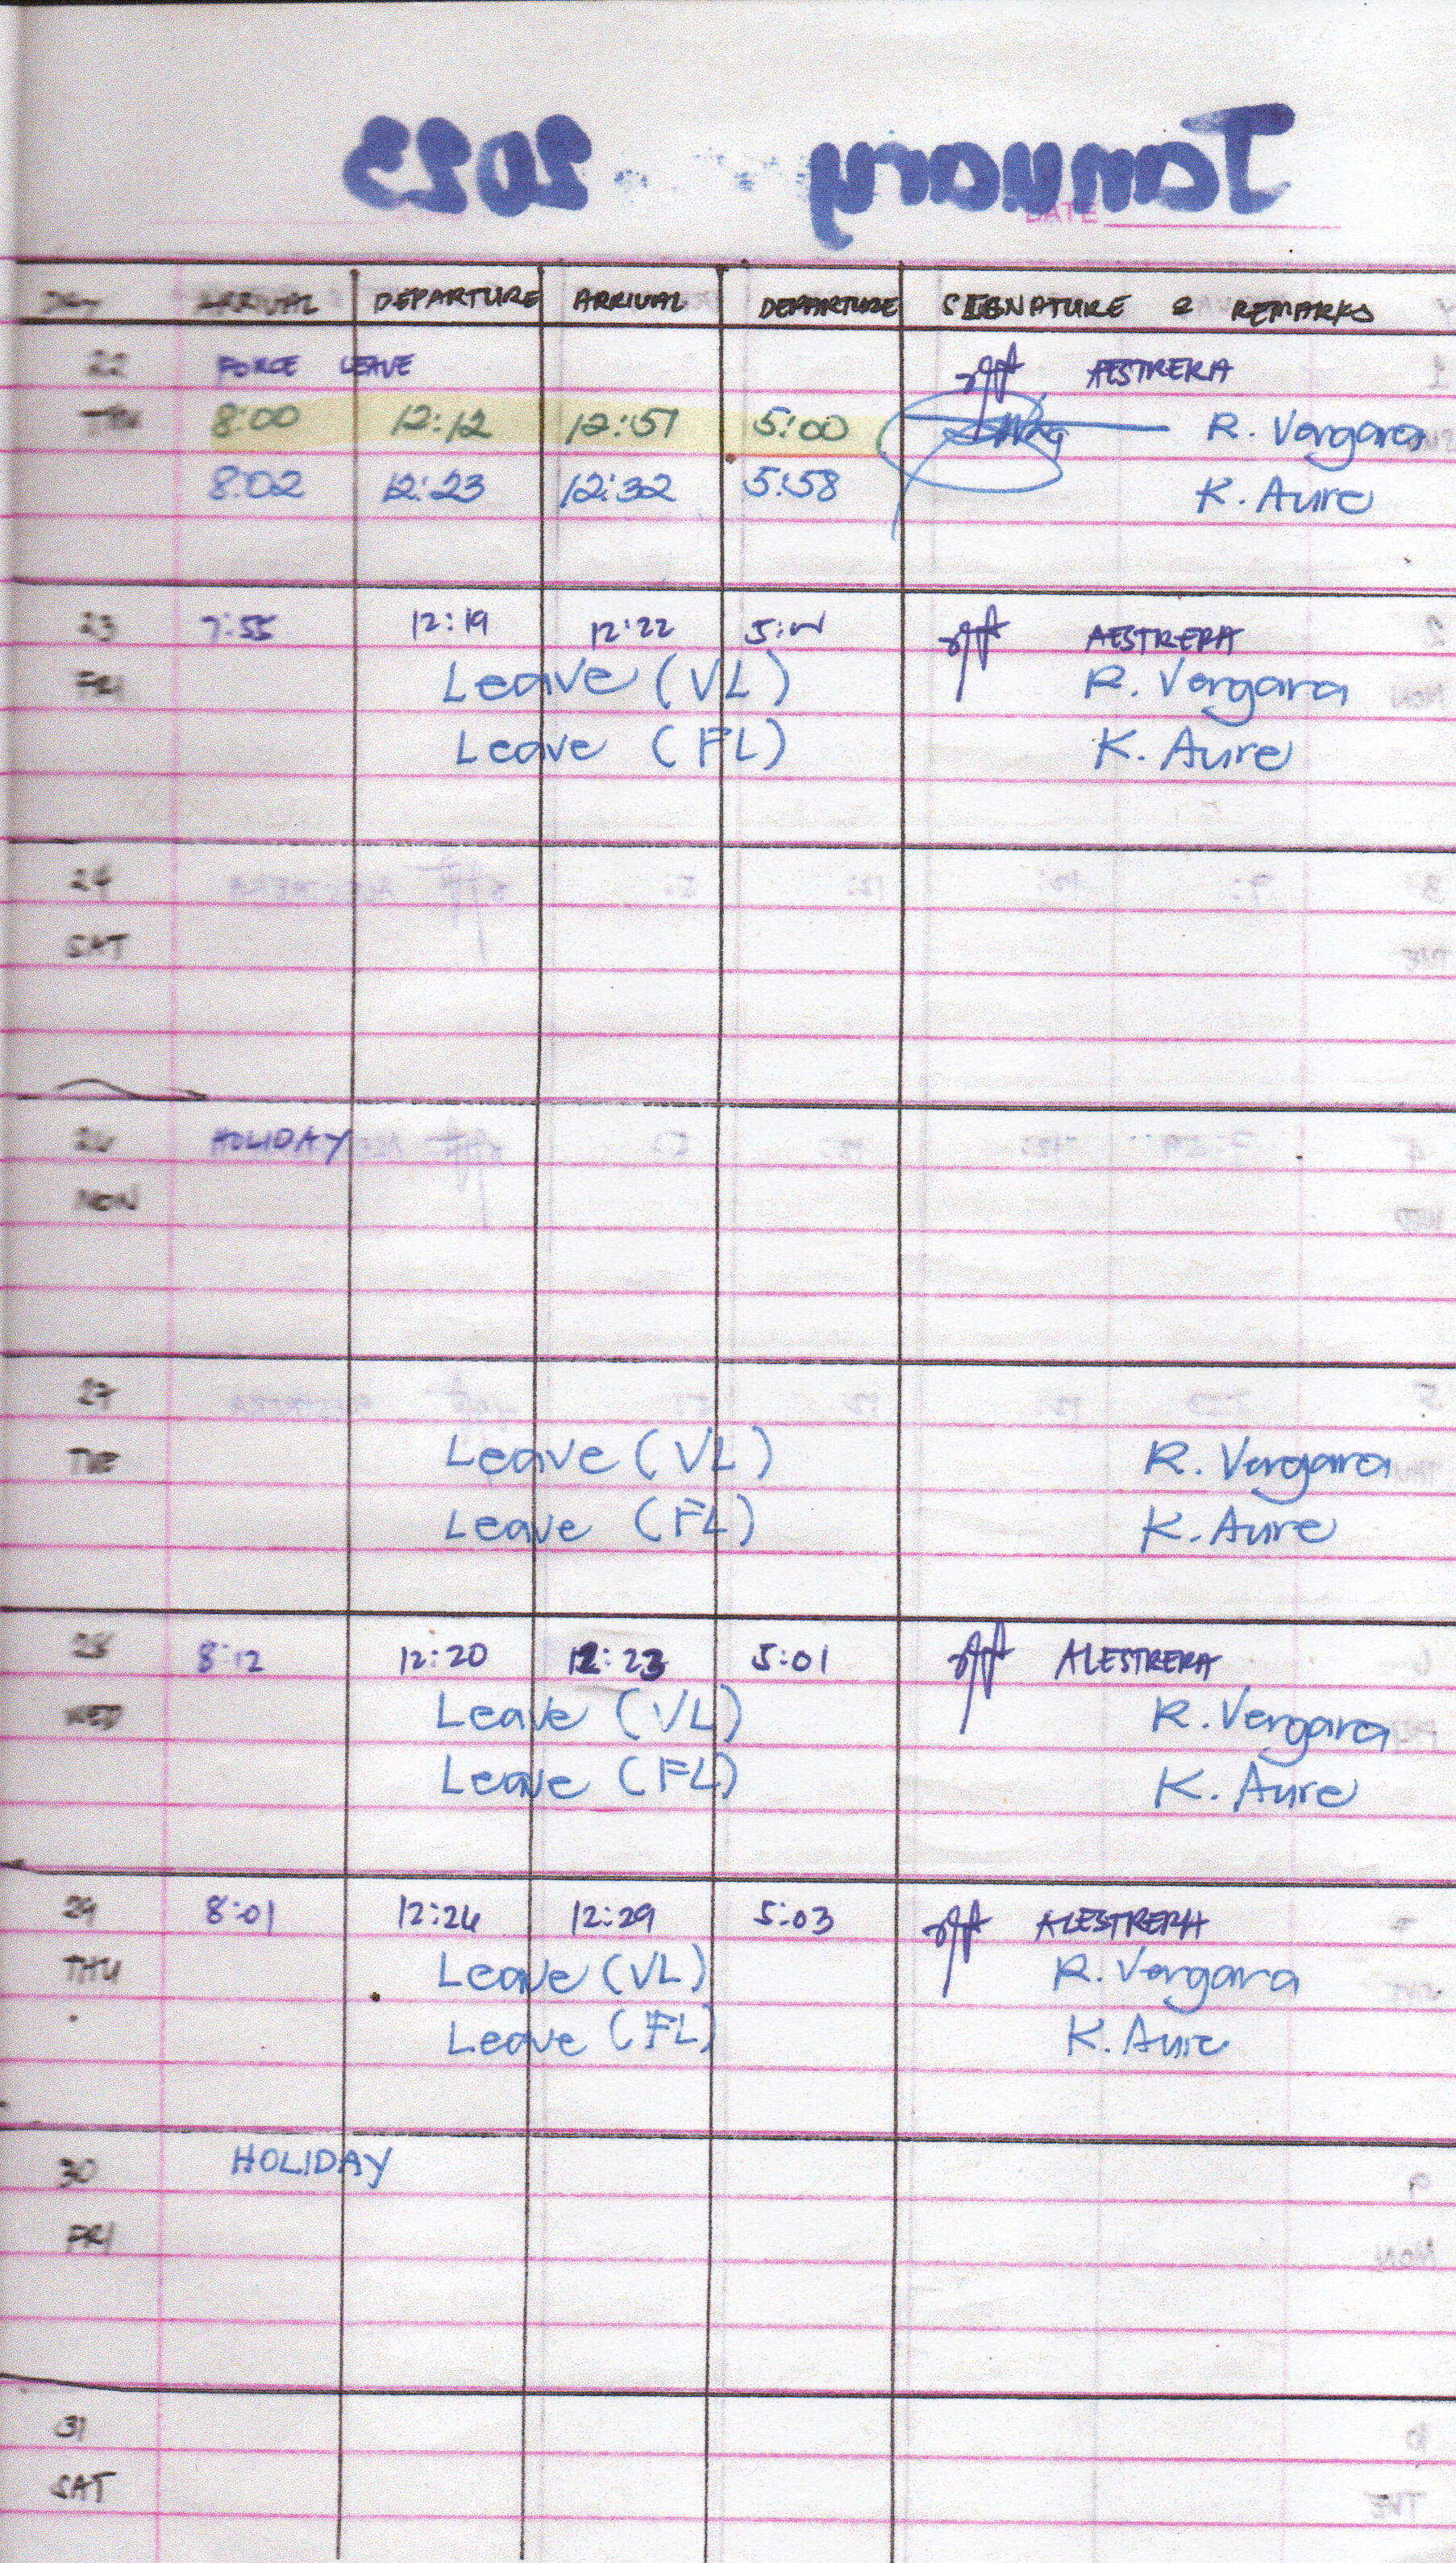 January 2023
DATE
DAY ARRIVAL DEPARTURE ARRIVAL DEPARTURE SIGNATURE & REMARKS
22 FORCE LEAVE AESTRERA
THU 8:00 12:12 12:51 5:00 R. Vergara
8:02 12:23 12:32 5:58 K. Aure
23 7:55 12:19 12:22 AESTRERA
FRI Leave (VL) R. Vergara
Leave (FL) K. Aure
24
SAT
26 HOLIDAY
MON
27
TUE Leave (VL) R. Vergara
Leave (FL) K. Aure
28 8:12 12:20 12:23 5:01 ALESTRERA
WED Leave (VL) R. Vergara
Leave (FL) K. Aure
29 8:01 12:26 12:29 5:03 ALESTRERA
THU Leave (VL) R. Vergara
Leave (FL) K. Aure
30 HOLIDAY
FRI
31
SAT